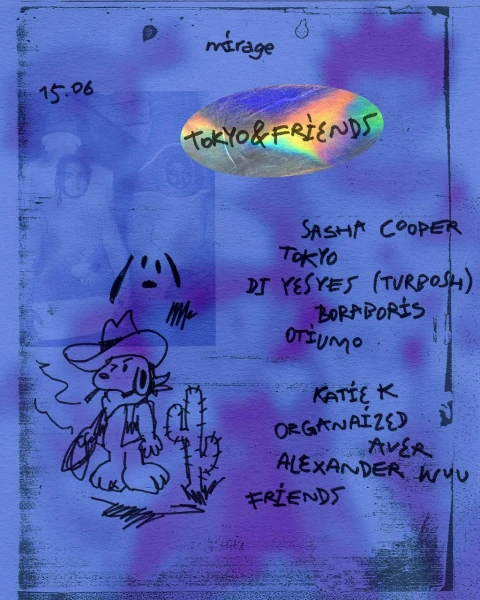 mirage
15.06
TOKYO&FRIENDS
SASHA COOPER
TOKYO
DJ YESYES (TURBOSH)
BORABORIS
OTIUMO
KATIE K
ORGANAIZED
AVER
ALEXANDER WVU
FRIENDS